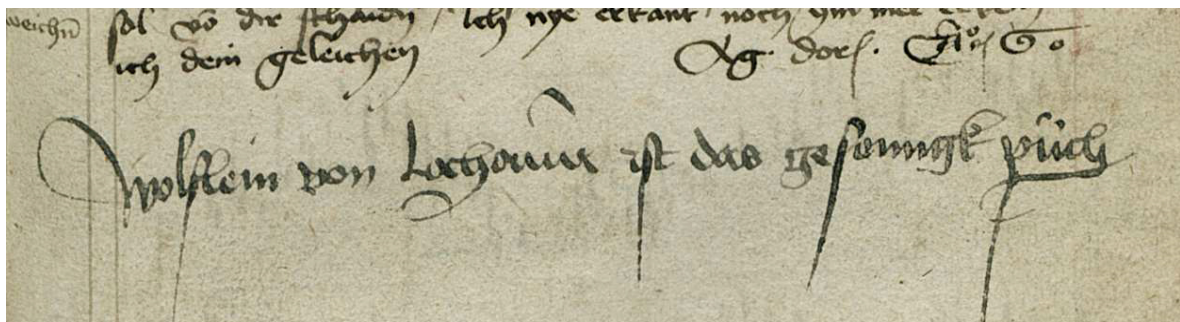 weichn̄ sol vō dir schaidn / Ich nye erkant noch
ich dein geleichen Ag dorf.
Wolflein von Lochamr̄ ist das gesenngk püch